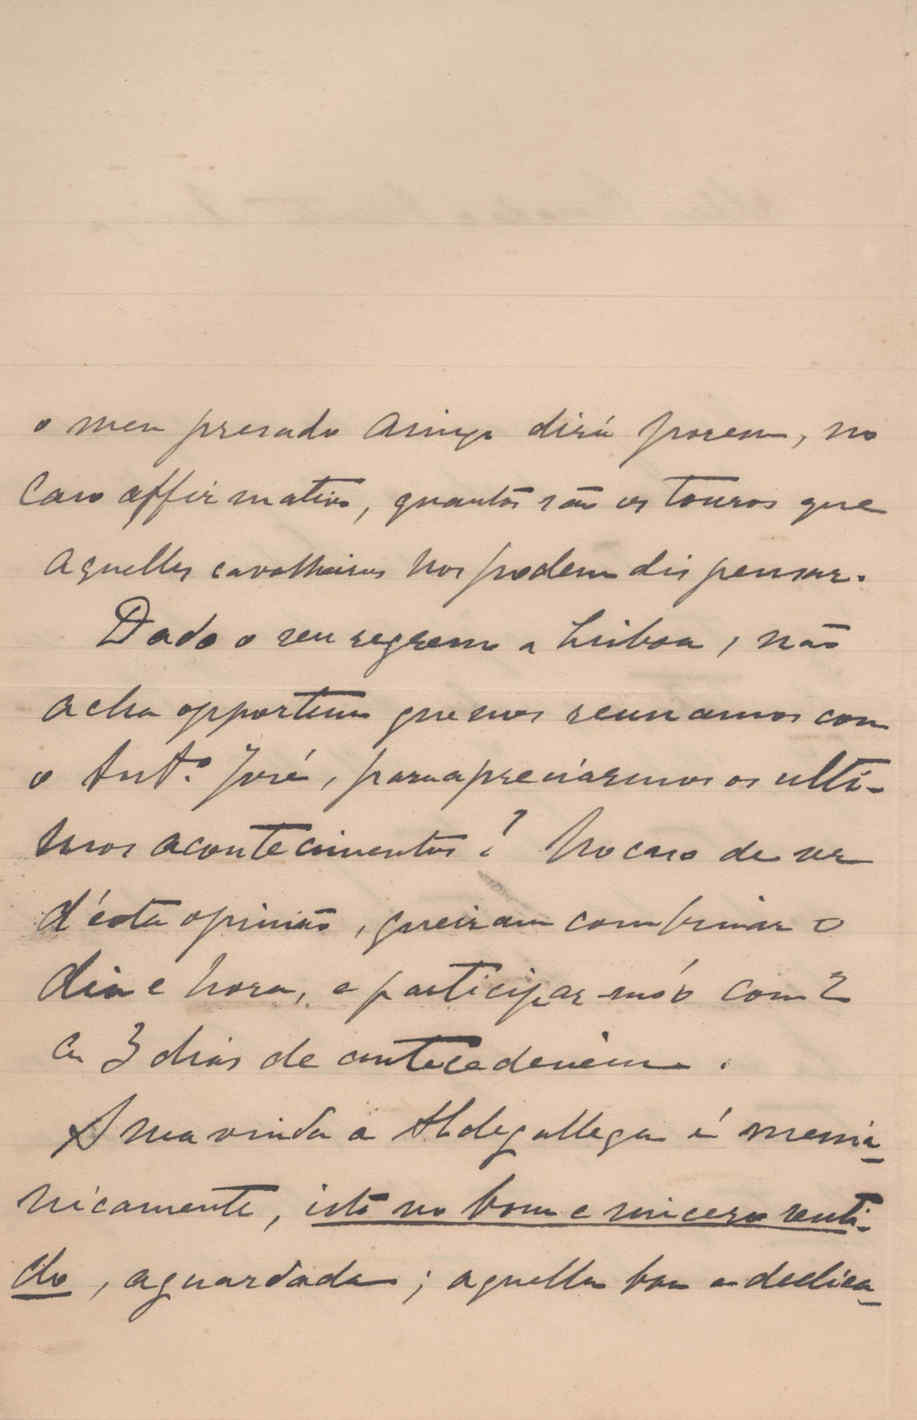 o meu presado amigo dirá porem, no
caso affirmativo, quantos são os touros que
aquelles cavalheiros nos podem dispensar.
Dado o seu regresso a Lisboa, não
acha opportuno que nos reunamos com
o Antº. José, para apreciarmos os ulti-
mos acontecimentos? No caso de ser
d'esta opinião, queiram combinar o
dia e hora, e participar-m'o com 2
ou 3 dias de antecedencia.
A sua vinda a Aldegallega é messia-
nicamente, isto no bom e sincero senti-
do, aguardada; aquella boa e dedica-